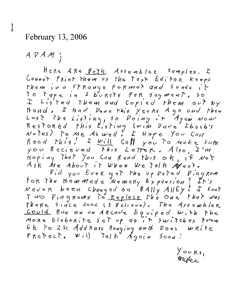 February 13, 2006
ADAM;
Here Are Both Assembler Samples. I
Cannot Print Them as the Text Editor Keeps
Them in a Strange Format and sends it
to Tape in 2 bursts Per segment. so
I Listed Them and Copied Them out by
Hand. I Had Done This Years Ago and Then
Lost The Listing, so Doing it Again Now
Restored This Listing (with Dave
Notes) To Me As well. I Hope You Can
Read This! I Will Call you To Make Sure
you Recieved This Letter. Also, I'm
Hoping That You Can Read This ok, if Not
Ask Me About it When We Talk Next.
Did you Ever Get The updated Diagram
For The Homemade Memory Expansion? It's
Never been Changed on BALLY ALLEY! I sent
Two Diagrams To Replace The One That was
There Since 2002 (I Believe). The Assembler
Could Run on an Arcade Equiped with The
More Elaborite set up as it Switches From
6k To 2k Address Ranging and Does Write
Protect. Will Talk Again Soon!
Yours,